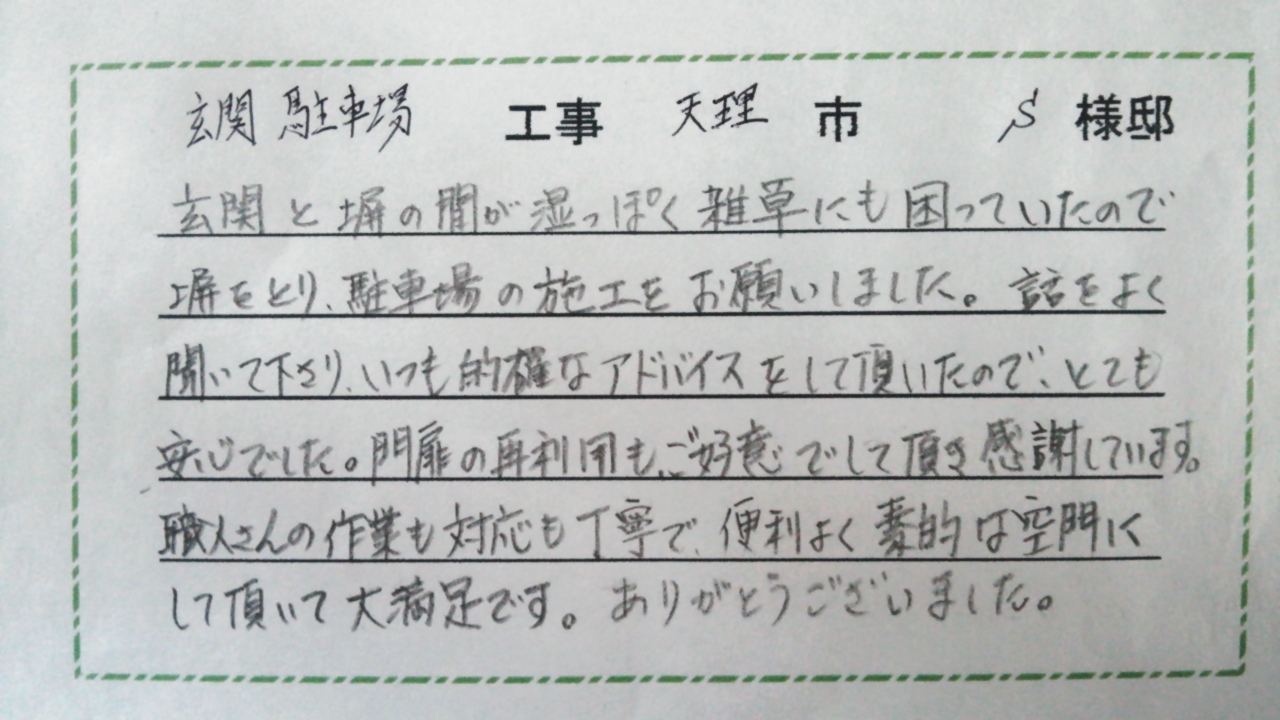 玄関 駐車場 工事 天理 市 S 様邸
玄関と塀の間が湿っぽく雑草にも困っていたので
塀をとり、駐車場の施工をお願いしました。話をよく
聞いて下さり、いつも的確なアドバイスをして頂いたので、とても
安心でした。門扉の再利用も、ご好意でして頂き感謝しています。
職人さんの作業も対応も丁寧で、便利よく素的な空間に
して頂いて大満足です。ありがとうございました。